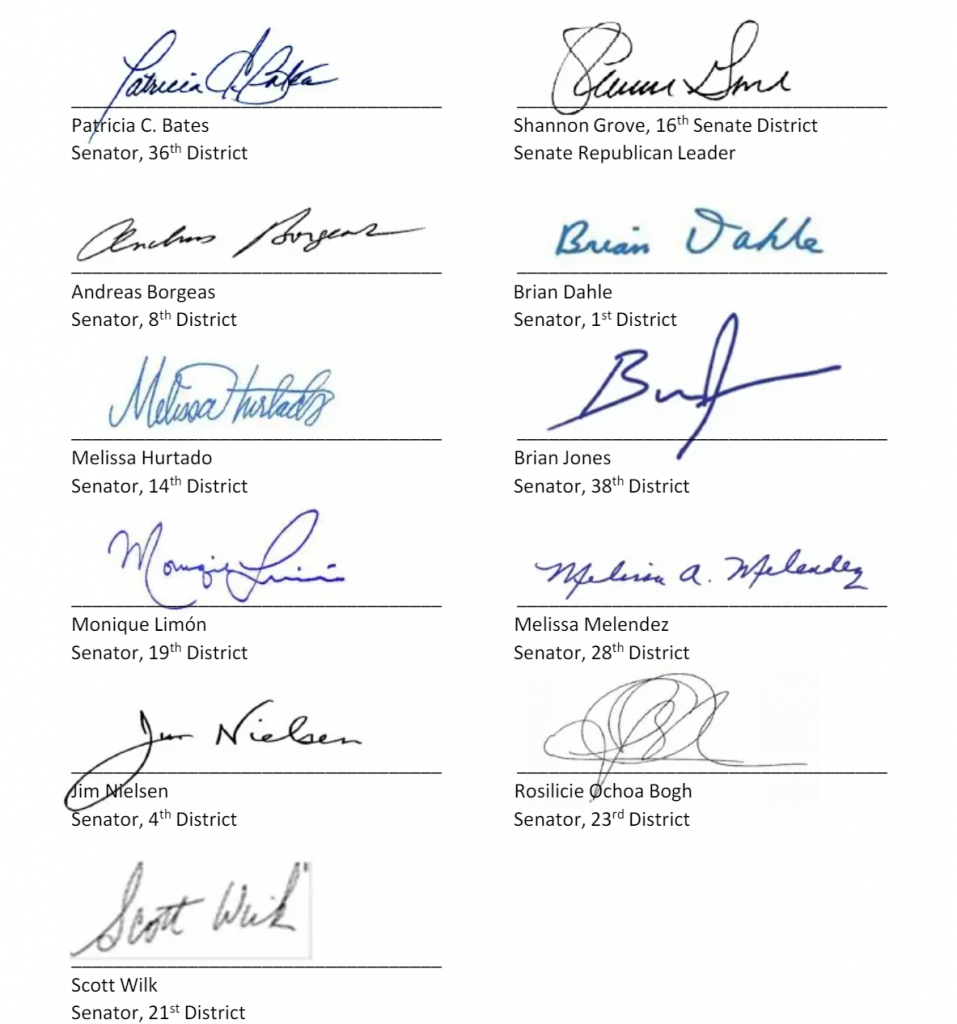 Patricia C. Bates
Patricia C. Bates
Senator, 36th District
Shannon Grove, 16th Senate District
Senate Republican Leader
Andreas Borgeas
Andreas Borgeas
Senator, 8th District
Brian Dahle
Brian Dahle
Senator, 1st District
Melissa Hurtado
Melissa Hurtado
Senator, 14th District
Brian Jones
Senator, 38th District
Monique Limón
Monique Limón
Senator, 19th District
Melissa A. Melendez
Melissa Melendez
Senator, 28th District
Jim Nielsen
Jim Nielsen
Senator, 4th District
Rosilicie Ochoa Bogh
Senator, 23rd District
Scott Wilk
Scott Wilk
Senator, 21st District